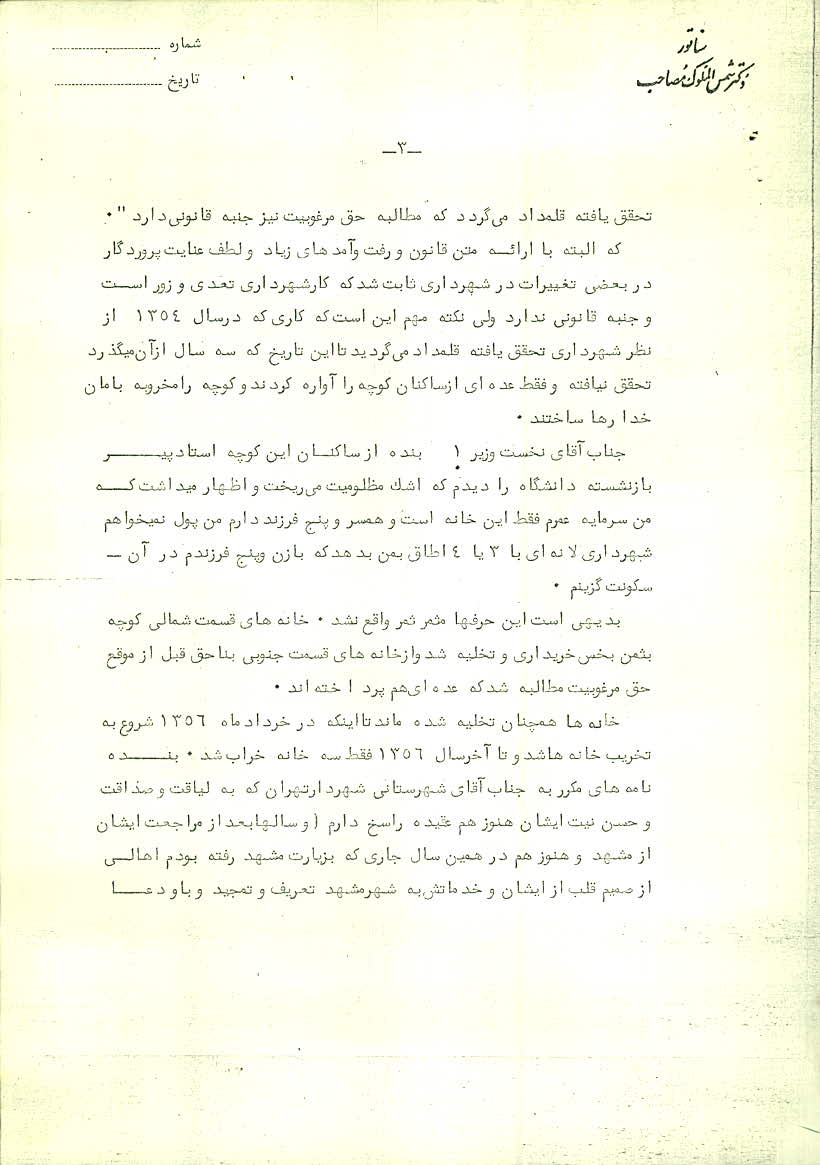 سناتور
دکتر شمس الملوک مصاحب
شماره
تاریخ
ـ۳ـ
تحقق یافته قلمداد می‌گردد که مطالبه حق مرغوبیت نیز جنبه قانونی دارد " ۰
که البته با ارائه متن قانون و رفت وآمدهای زیاد و لطف عنایت پروردگار
در بعضی تغییرات در شهرداری ثابت شد که کار شهرداری تعدی و زور است
و جنبه قانونی ندارد ولی نکته مهم این است که کاری که در سال ۱۳۵٤ از
نظر شهرداری تحقق یافته قلمداد می‌گردید تا این تاریخ که سه سال از آن میگذرد
تحقق نیافته و فقط عده ای از ساکنان کوچه را آواره کردند و کوچه را مخروبه با مان
خدا رها ساختند ۰
جناب آقای نخست وزیر ! بنده از ساکنان این کوچه استاد پیر
بازنشسته دانشگاه را دیدم که اشك مظلومیت می‌ریخت و اظهار میداشت که
من سرمایه عمرم فقط این خانه است و همسر و پنج فرزند دارم من پول نمیخواهم
شهرداری لانه ای با ۳ یا ٤ اطاق بمن بدهد که با زن و پنج فرزندم در آن ـ
سکونت گزینم ۰
بدیهی است این حرفها مثمر ثمر واقع نشد ۰ خانه های قسمت شمالی کوچه
بثمن بخس خریداری و تخلیه شد و از خانه های قسمت جنوبی بناحق قبل از موقع
حق مرغوبیت مطالبه شد که عده ای هم پرداخته اند ۰
خانه ها همچنان تخلیه شده ماند تا اینکه در خرداد ماه ۱۳۵٦ شروع به
تخریب خانه ها شد و تا آخر سال ۱۳۵٦ فقط سه خانه خراب شد ۰ بنده
نامه های مکرر به جناب آقای شهرستانی شهردار تهران که به لیاقت و صداقت
و حسن نیت ایشان هنوز هم عقیده راسخ دارم ( و سالها بعد از مراجعت ایشان
از مشهد و هنوز هم در همین سال جاری که بزیارت مشهد رفته بودم اهالی
از صمیم قلب از ایشان و خدماتش به شهر مشهد تعریف و تمجید و باو دعا